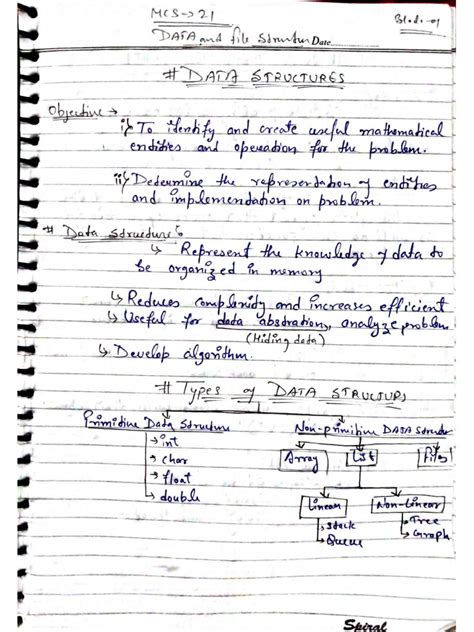 MCS→21
Block-01
DATA and file Structur Date
# DATA STRUCTURES
Objective →
i) To identify and create useful mathematical
entities and operation for the problem.
ii) Determine the representation of entities
and implementation on problem.
# Data Structure:
↳ Represent the knowledge of data to
be organized in memory
↳ Reduces complexity and increases efficient
↳ Useful for data abstration, analyze problem
(Hiding data)
↳ Develop algorithm.
# Types of DATA STRUCTURS
Primitive Data Structure
Non-primitive DATA Structur
→ int
→ char
→ float
→ double
Array
List
Files
Linear
Non-Linear
→ Stack
→ Queue
→ Tree
→ Graph
Spiral